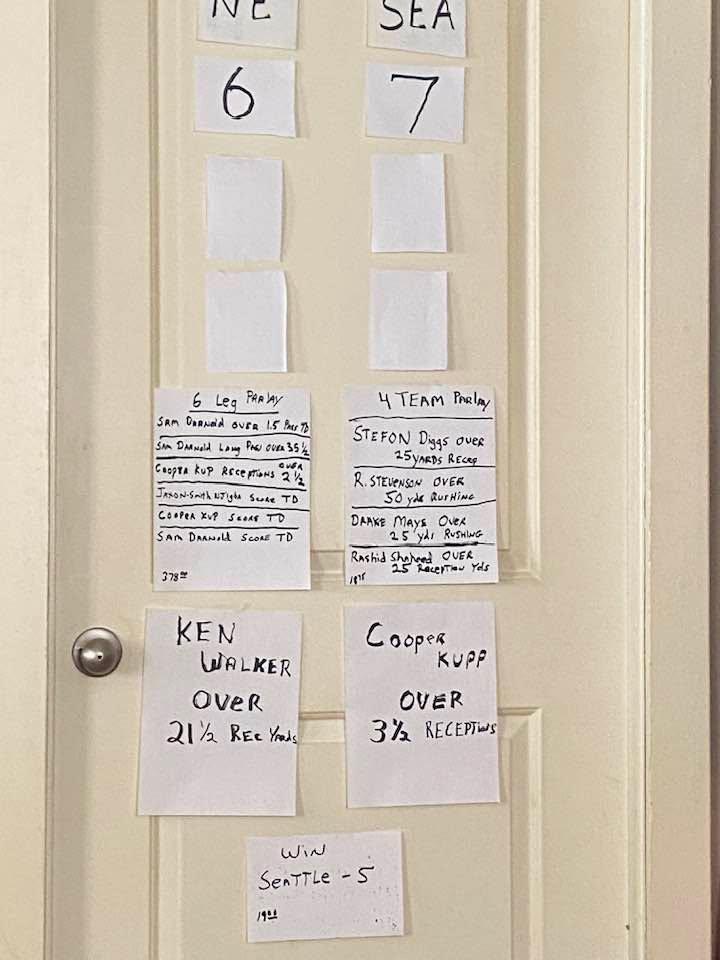 NE
SEA
6
7
6 Leg PARLAY
SAM DARNOLD OVER 1.5 PASS TD
SAM DARNOLD Long PASS OVER 35 1/2
COOPER KUP RECEPTIONS OVER 2 1/2
JAXON-SMITH NJIGBA SCORE TD
COOPER KUP SCORE TD
SAM DARNOLD SCORE TD
378.00
4 TEAM PARLAY
STEFON Diggs OVER
25 YARDS RECEP
R. STEVENSON OVER
50 yds RUSHING
DRAKE MAYS OVER
25 yds RUSHING
Rashid Shaheed OVER
25 RECEPTION Yds
KEN
WALKER
OVER
21 1/2 REC YARDS
Cooper
KUPP
OVER
3 1/2 RECEPTIONS
WIN
SEATTLE - 5